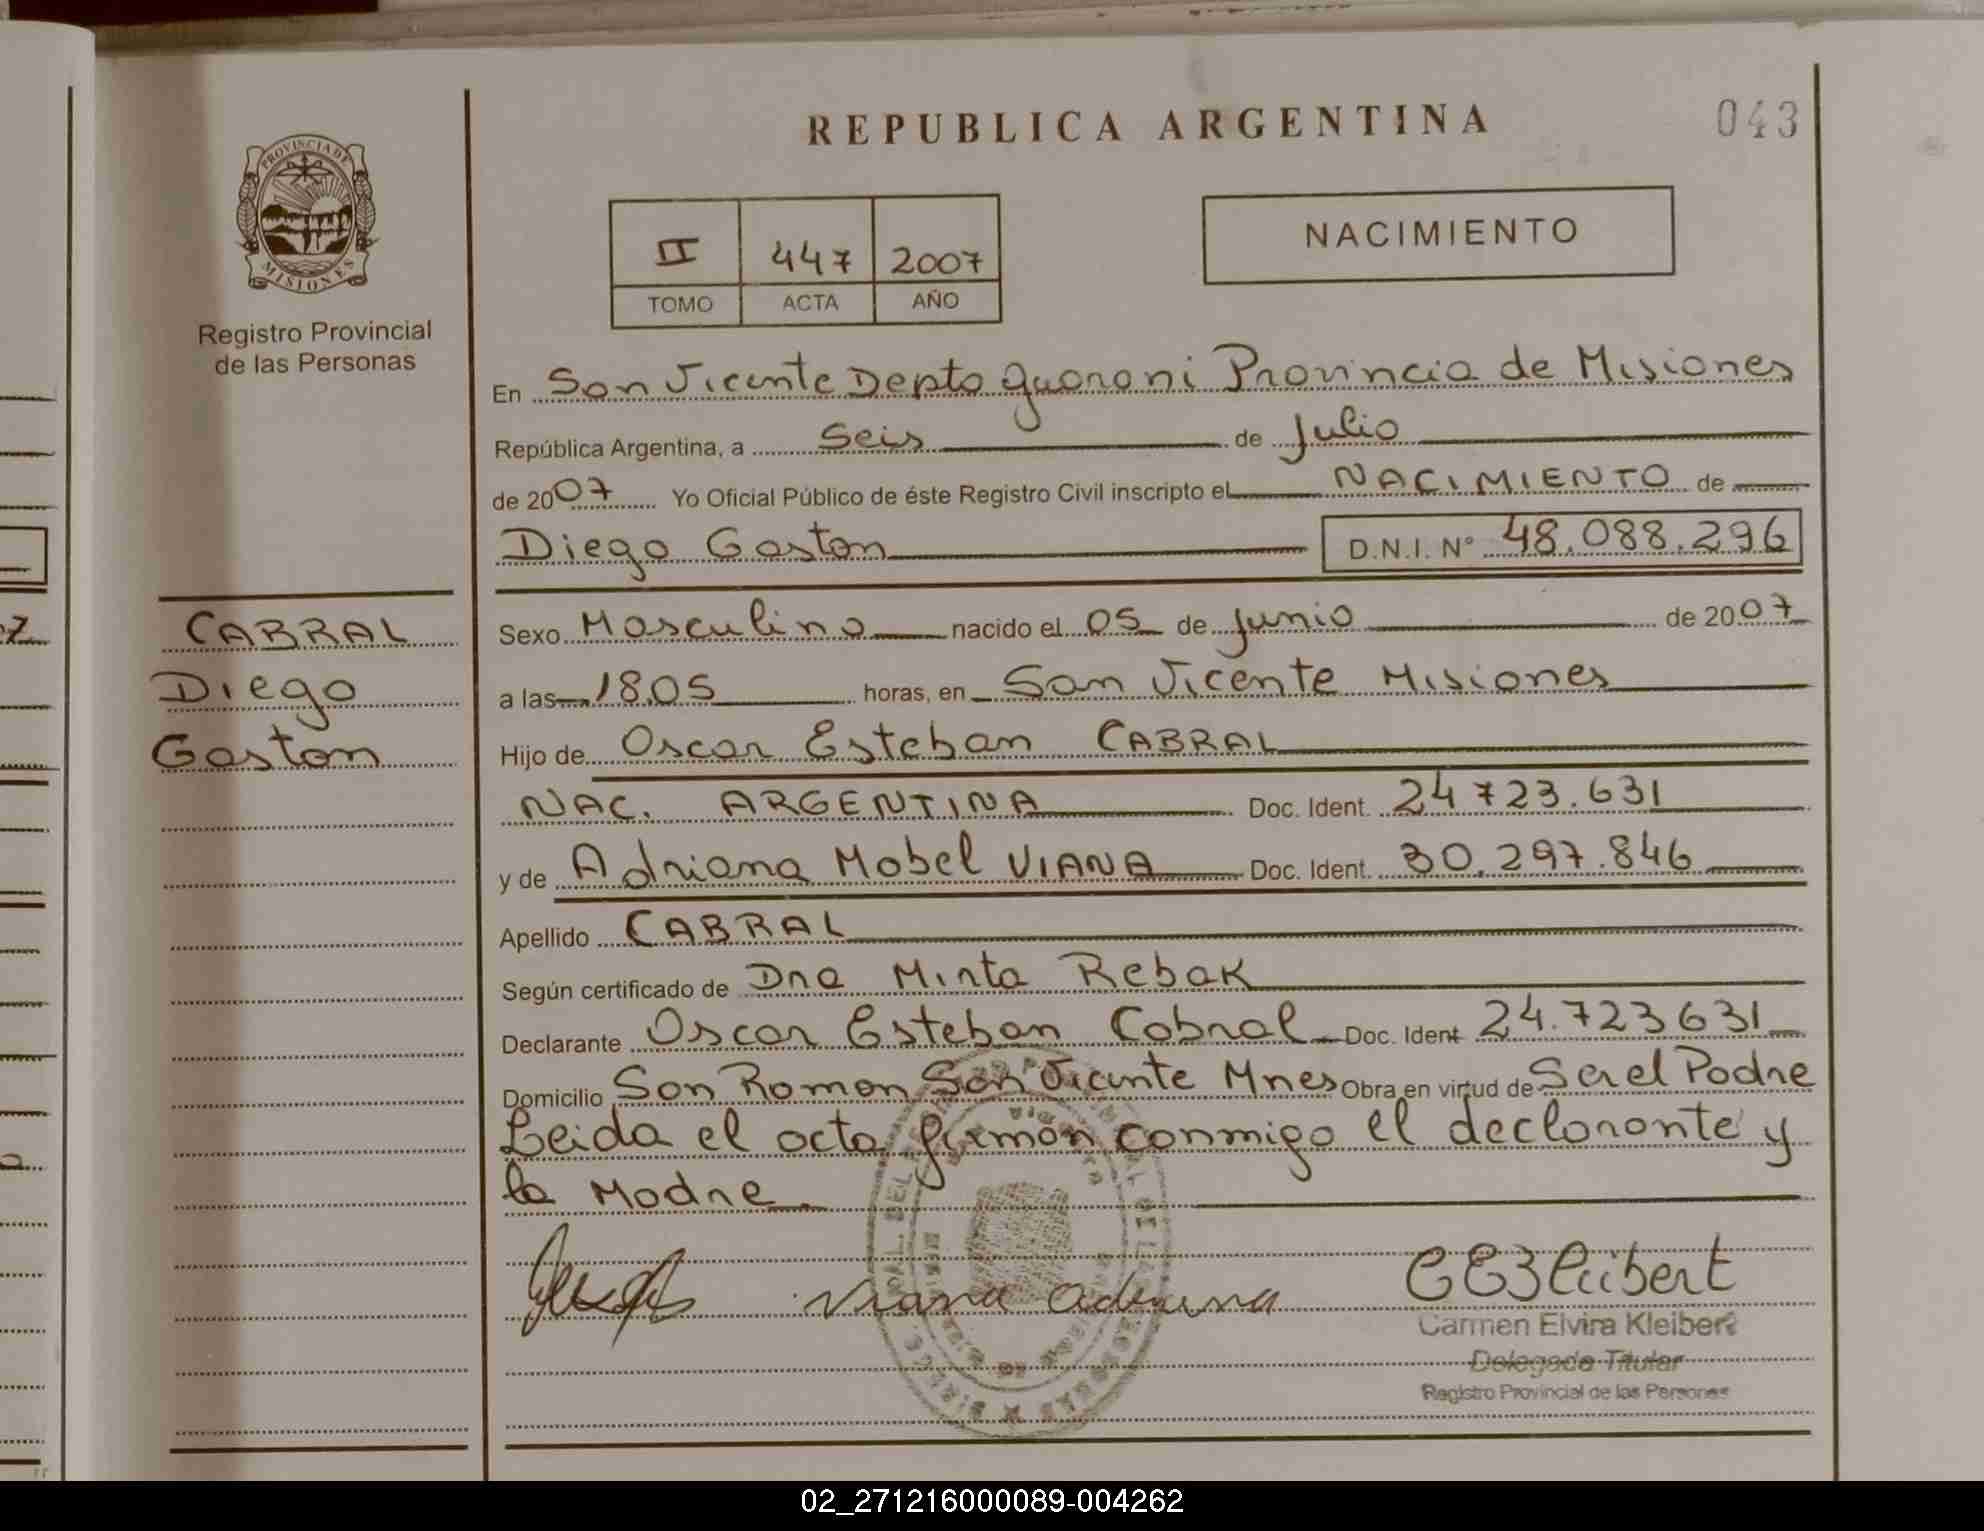 REPUBLICA ARGENTINA
043
PROVINCIA DE
MISIONES
Registro Provincial
de las Personas
II 447 2007
TOMO ACTA AÑO
NACIMIENTO
En San Vicente Depto guarani Provincia de Misiones
República Argentina, a Seis de Julio
de 2007 Yo Oficial Público de éste Registro Civil inscripto el NACIMIENTO de
Diego Gaston D.N.I. N° 48.088.296
CABRAL
Diego
Gaston
Sexo Masculino nacido el 05 de junio de 2007
a las 18,05 horas, en San Vicente Misiones
Hijo de Oscar Esteban CABRAL
NAC. ARGENTINA Doc. Ident. 24723.631
y de Adriana Mabel VIANA Doc. Ident. 30.297.846
Apellido CABRAL
Según certificado de Dra Mirta Rebak
Declarante Oscar Esteban Cabral Doc. Ident 24.723631
Domicilio San Ramon San Vicente Mnes Obra en virtud de Ser el Padre
Leida el acta firman conmigo el declarante y
la Madre.
Viana Adriana
CEKleibert
Carmen Elvira Kleibert
Delegada Titular
Registro Provincial de las Personas
02_271216000089-004262